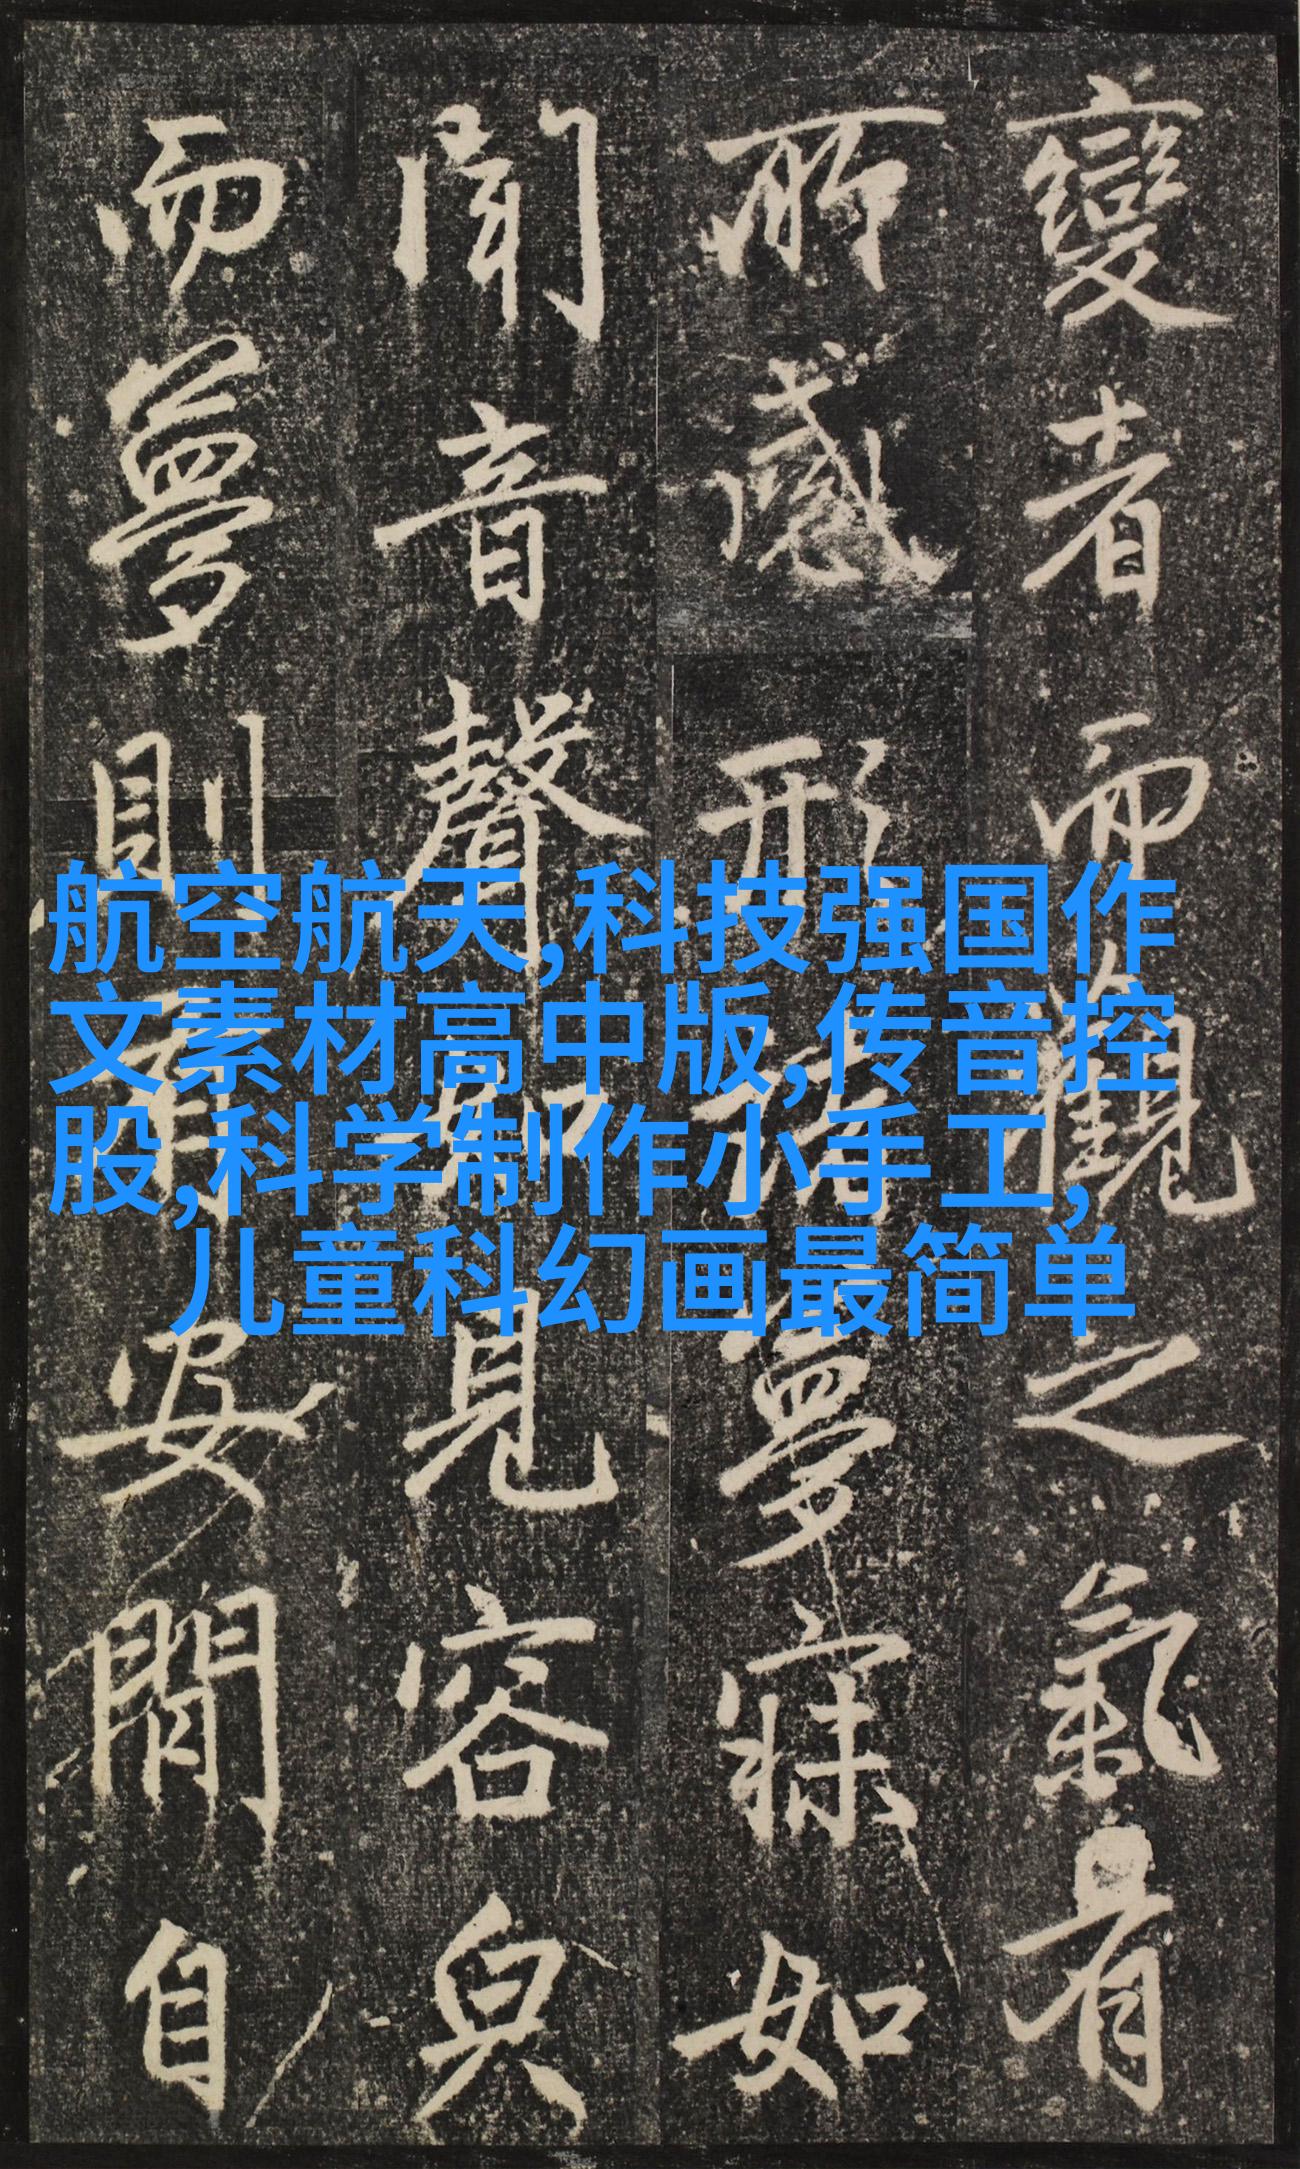 變者而觀之氣有
所感形諸夢寐如
聞音聲如見容皃
而夢則安閒自
航空航天,科技强国作
文素材高中版,传音控
股,科学制作小手工,
儿童科幻画最简单